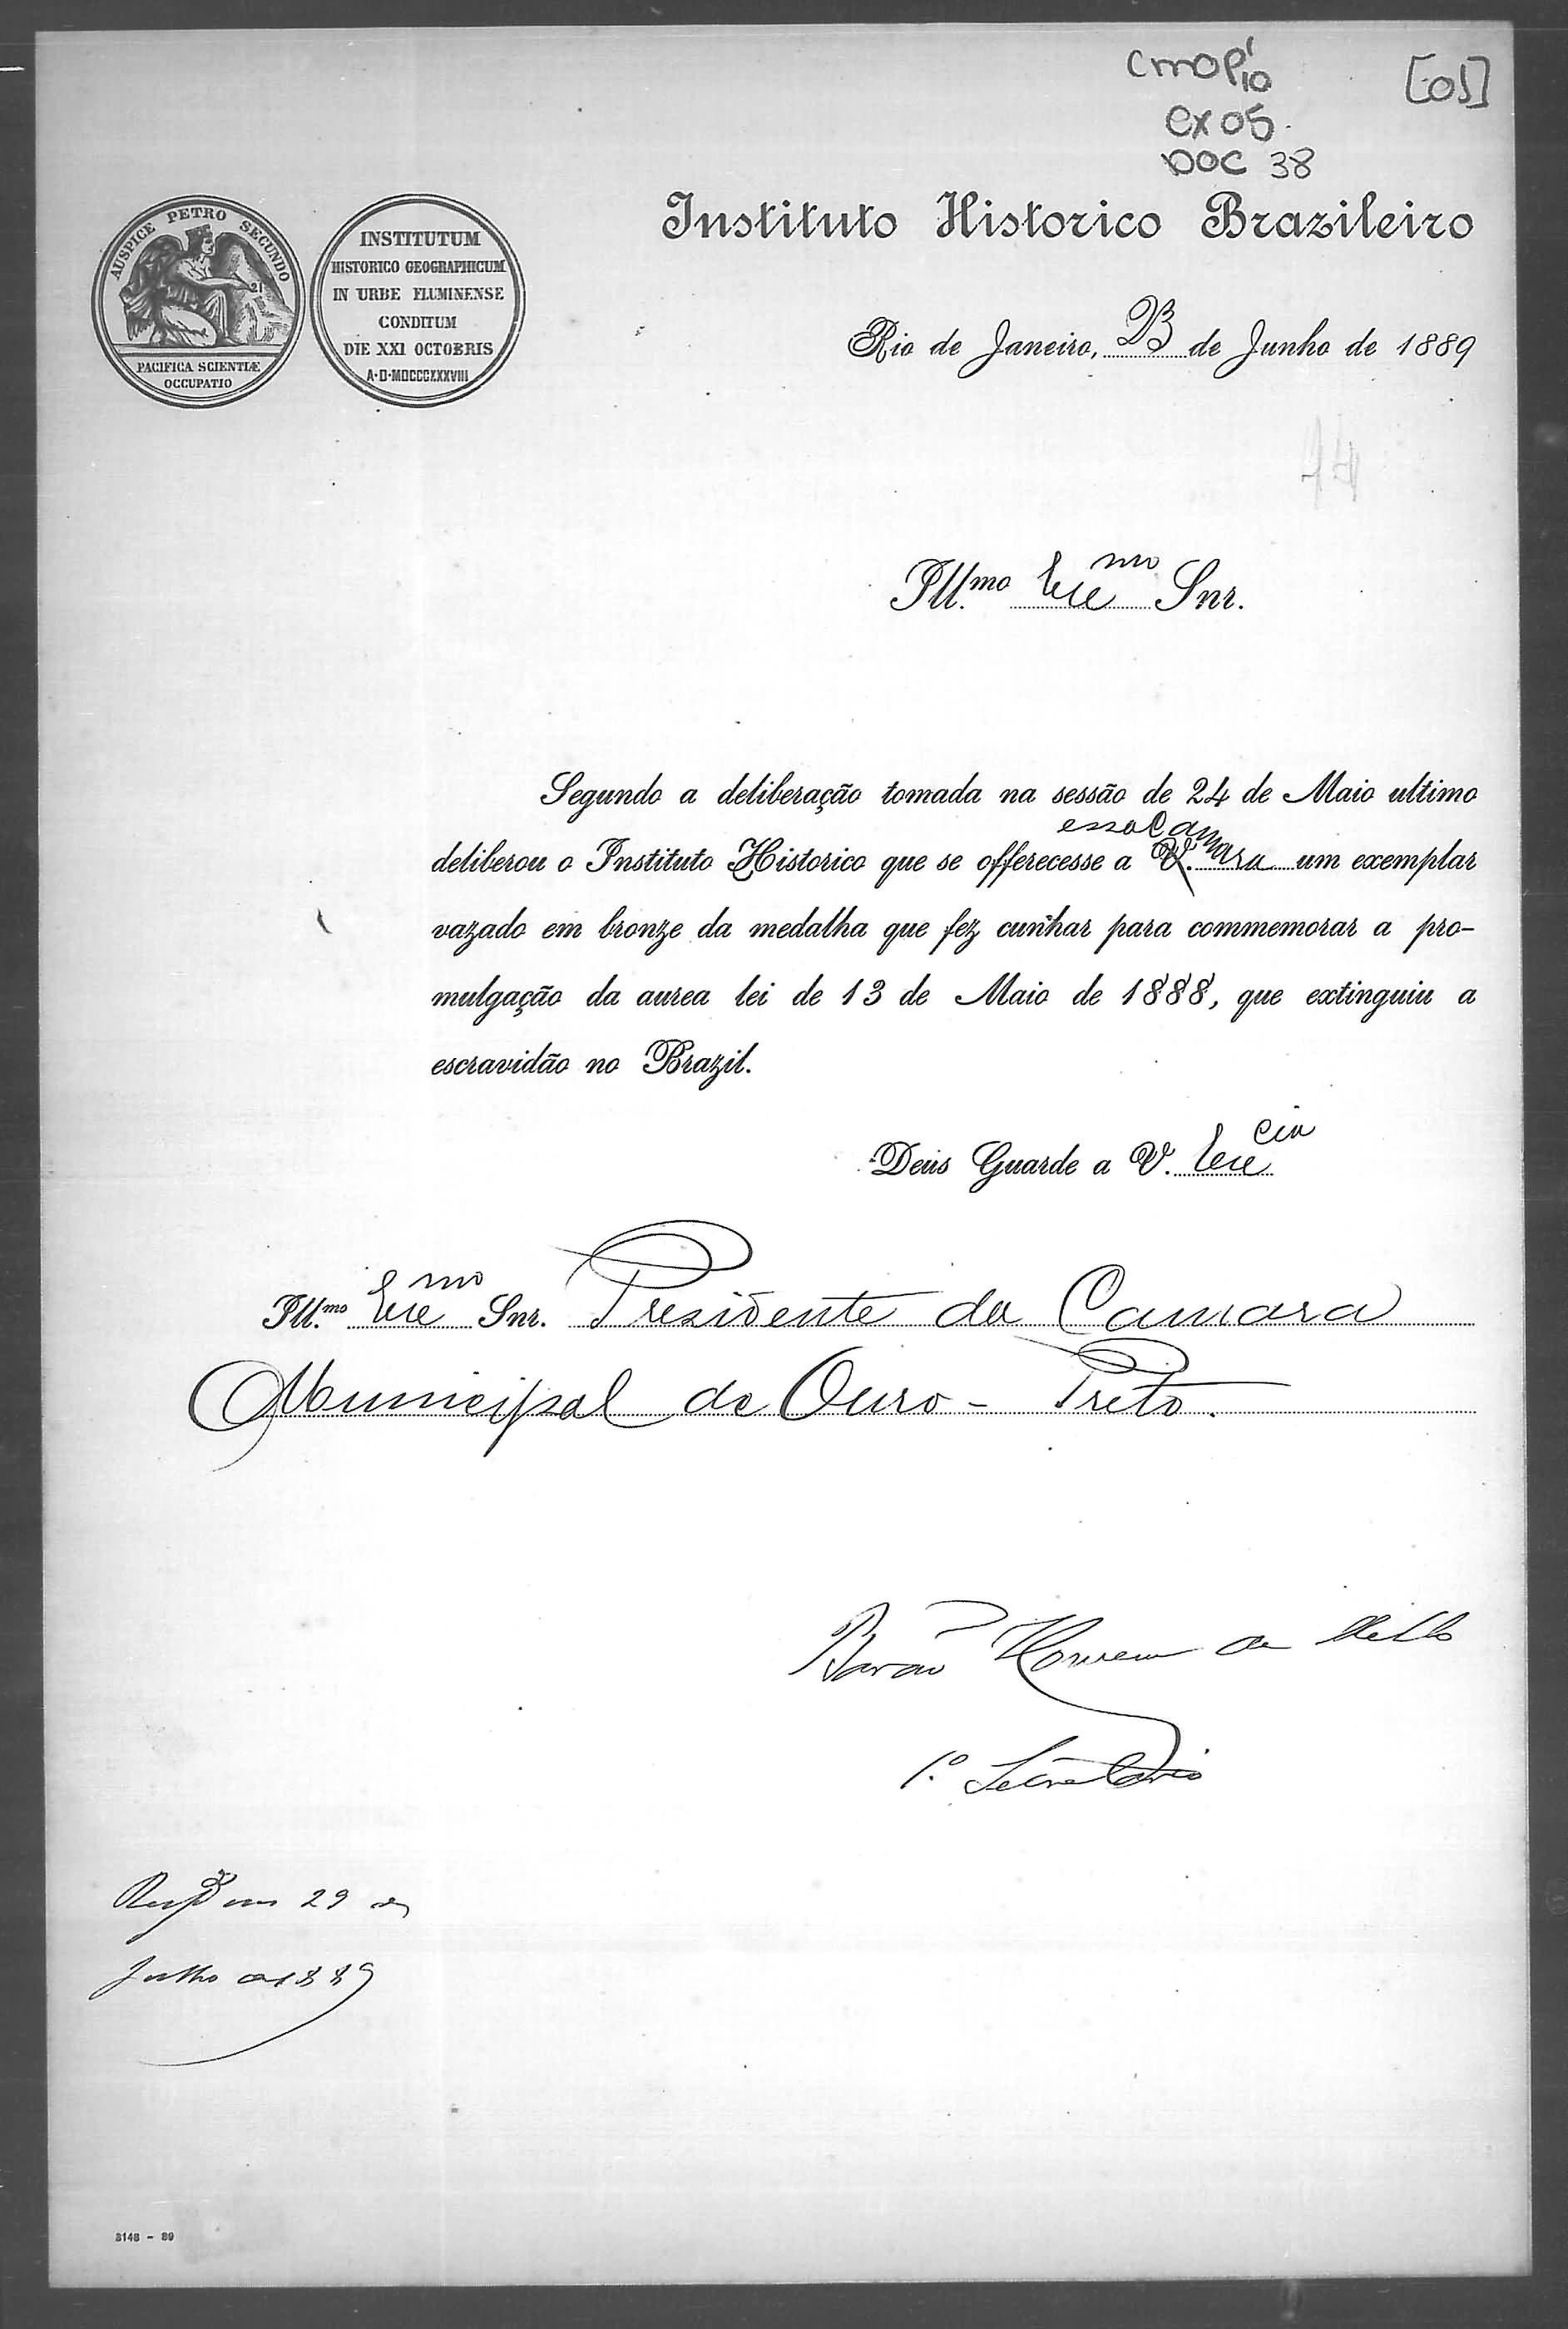 CMOP 1/10 [05]
CX 05.
DOC 38
Instituto Historico Brazileiro
AUSPICE PETRO SECUNDO
PACIFICA SCIENTIÆ
OCCUPATIO
INSTITUTUM
HISTORICO GEOGRAPHICUM
IN URBE FLUMINENSE
CONDITUM
DIE XXI OCTOBRIS
A·D·MDCCCXXXVIII
Rio de Janeiro, 23 de Junho de 1889
Ill.mo Exc mo Snr.
Segundo a deliberação tomada na sessão de 24 de Maio ultimo
deliberou o Instituto Historico que se offerecesse a essa Camara um exemplar
vazado em bronze da medalha que fez cunhar para commemorar a pro-
mulgação da aurea lei de 13 de Maio de 1888, que extinguiu a
escravidão no Brazil.
Deus Guarde a V. Exc cia
Ill.mo Exc mo Snr. Presidente da Camara
Municipal de Ouro-Preto.
Barão Homem de Mello
1.º Secretario
em 29 de
Julho de 1889
3148 - 89